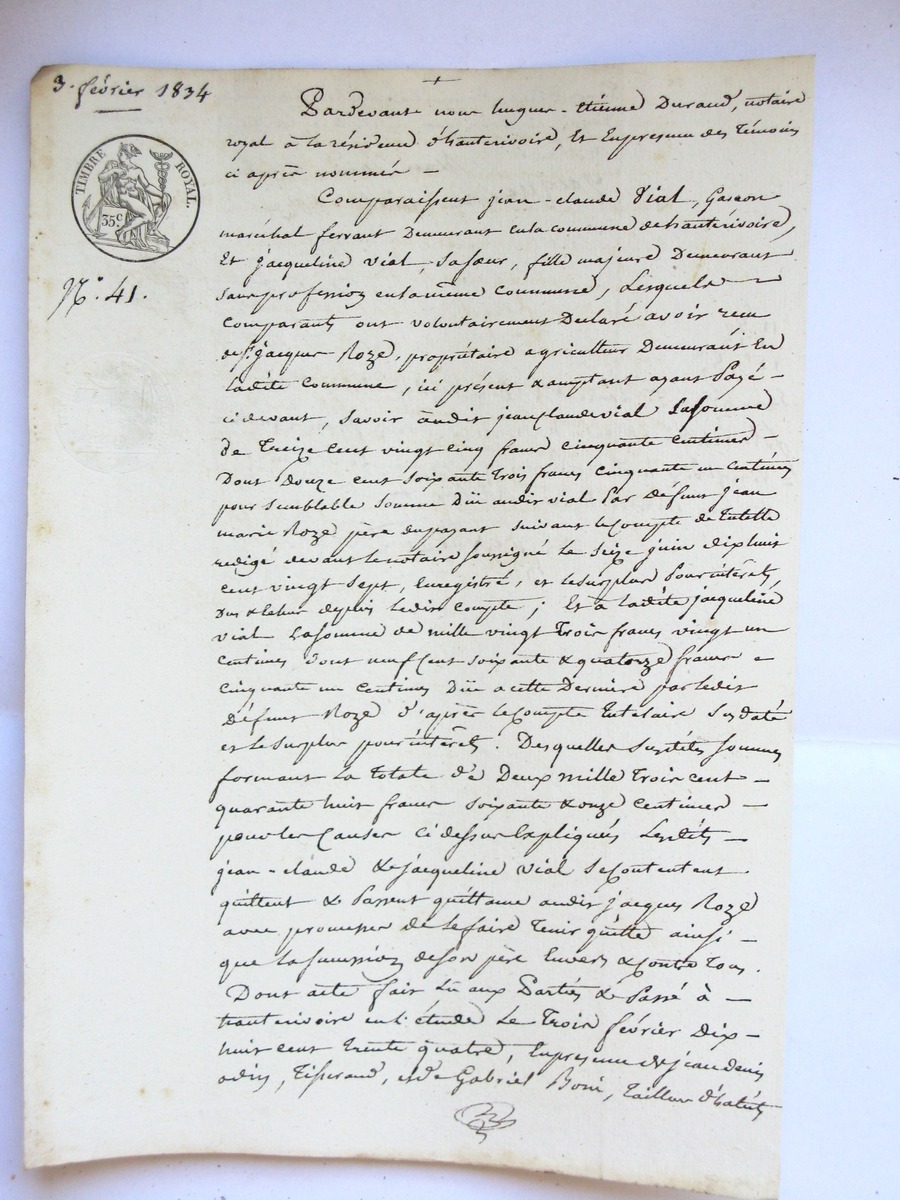 3. février 1834
TIMBRE ROYAL.
35c.
N°. 41.
Pardevant nous hugues-Etienne Durand, notaire
royal à la résidence d'hauterivoire, Et En presence des Témoins
ci après nommés —
Comparaissent jean-claude Vial, Garcon
maréchal ferrant Demeurant en la commune de hauterivoire,
Et jacqueline vial, sa sœur, fille majeure Demeurant
sans profession en la même commune, Lesquels
comparants ont volontairement Declaré avoir recu
de Sr. jacques Roze, propriétaire agriculteur Demeurant En
ladite commune, ici présent & acceptant ayant Payé —
ci devant, savoir audit jean claude vial La Somme
de Treize cent vingt cinq francs cinquante centimes —
Dont Douze cent soixante trois francs cinquante un centimes
pour semblable somme Düe audit vial Par Défunt jean
marie Roze père du payant suivant le Compte de Tutelle
redigé devant le notaire soussigné Le seize juin dix huit
cent vingt sept, Enregistré, et le surplus Pour intérêts
Dus & echus depuis ledit compte; Et à Ladite jacqueline
vial La somme de mille vingt Trois francs vingt un
centimes dont neuf cent soixante & quatorze francs
cinquante un centimes Düe a cette Derniere par ledit
Défunt Roze d'après le Compte Tutelaire Susdaté
et le surplus pour intérêts. Desquelles Susdites sommes
formant La Totale de Deux mille Trois cent —
quarante huit francs soixante & onze centimes —
pour les Causes ci dessus Expliqués Lesdits —
jean-claude & jacqueline vial se Contentent
quittent & Passent quittance audit jacques Roze
avec promesse de le faire Tenir quitte ainsi —
que la succession de son père Envers & Contre Tous.
Dont acte fait Lu aux Parties & Passé à —
hauterivoire en l'étude Le Trois février Dix —
huit cent trente quatre, En presence de jean denis
odin, Tisserand, et de Gabriel Boni, Tailleur d'habits